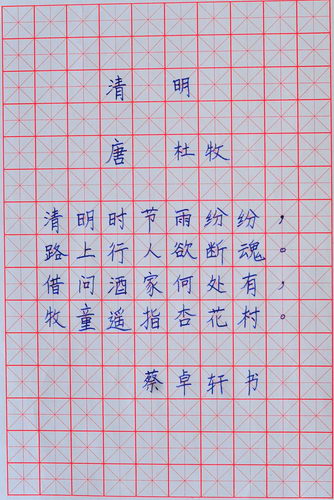 清 明
唐 杜牧
清明时节雨纷纷，
路上行人欲断魂。
借问酒家何处有，
牧童遥指杏花村。
蔡卓轩书